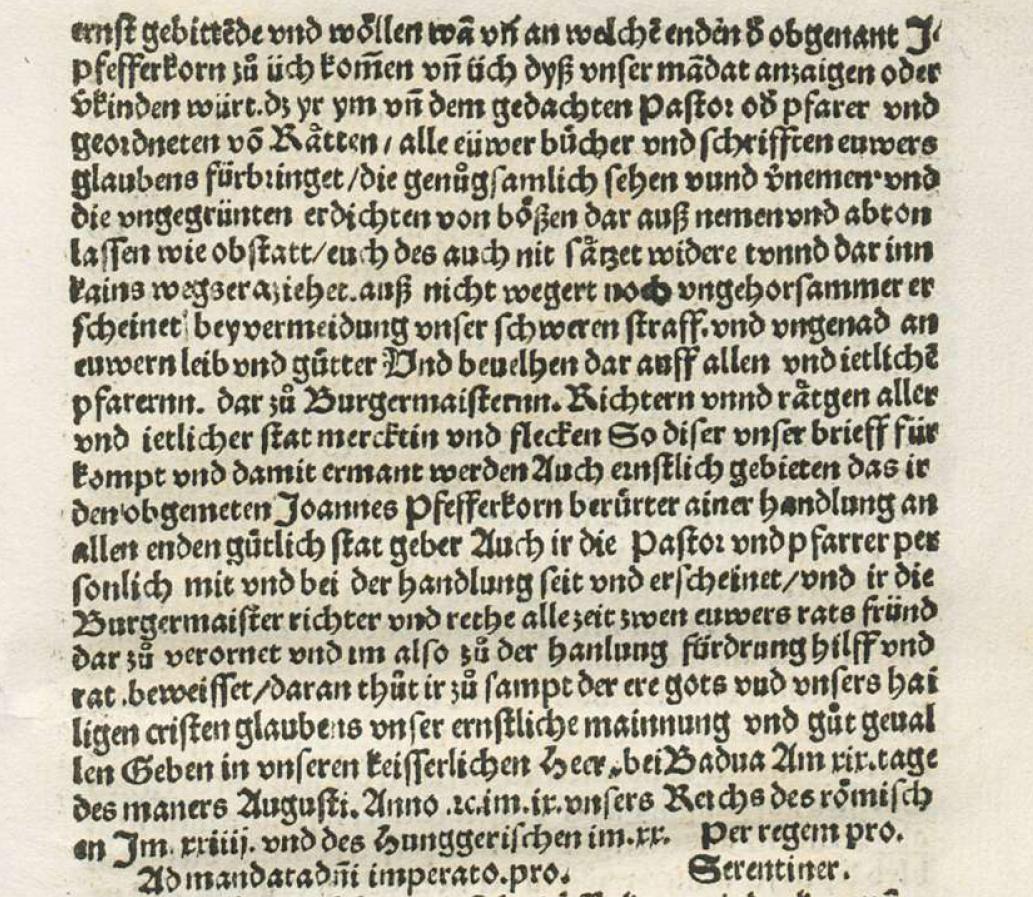 ernst gebittẽde vnd woͤllen wã vñ an welchẽ enden d̕ obgenant J·
pfefferkorn zuͦ uͤch kom̃en vñ uͤch dyß vnser mãdat anzaigen oder
v̕kinden wuͤrt.dz yr ym vñ dem gedachten Pastor od̕ pfarer vnd
geordneten võ Raͤtten / alle euͤwer buͤcher vnd schrifften euwers
glaubens fuͤrbringet /die genuͦgsamlich sehen vund v̕nemen·vnd
die vngegruͤnten erdichten von boͤßen dar auß nemen vnd abton
lassen wie obstatt/euch des auch nit saͤtzet widere tvnnd dar inn
kains wegs erziehet.auß nicht wegert noch vngehorsammer er
scheinet bey vermeidung vnser schweren straff.vnd vngenad an
euwern leib vnd guͤtter Vnd beuelhen dar auff allen vnd ietlichẽ
pfarernn. dar zuͦ Burgermaisternn. Richtern vnnd raͤtgen aller
vnd ietlicher stat mercktin vnd flecken So diser vnser brieff fuͤr
kompt vnd damit ermant werden Auch ernstlich gebieten das ir
den obgemeten Joannes Pfefferkorn beruͤrter ainer handlung an
allen enden guͤtlich stat geber Auch ir die Pastor vnd pfarrer per
sonlich mit vnd bei der handlung seit vnd erscheinet/vnd ir die
Burgermaister richter vnd rethe alle zeit zwen euwers rats fruͤnd
dar zuͦ verornet vnd im also zuͦ der hanlung fuͤrdrung hilff vnd
rat .beweisset/daran thuͤt ir zuͦ sampt der ere gots vnd vnsers hai
ligen cristen glaubens vnser ernstliche mainnung vnd guͦt geual
len Geben in vnseren keisserlichen Heer, bei Badua Am xix.tage
des maners Augusti. Anno .ꝛc.im.ix.vnsers Reichs des roͤmisch
en Jm. xxiiij. vnd des Hunggerischen im.xx. Per regem pro.
Ad mandata dñi imperato.pro. Serentiner.